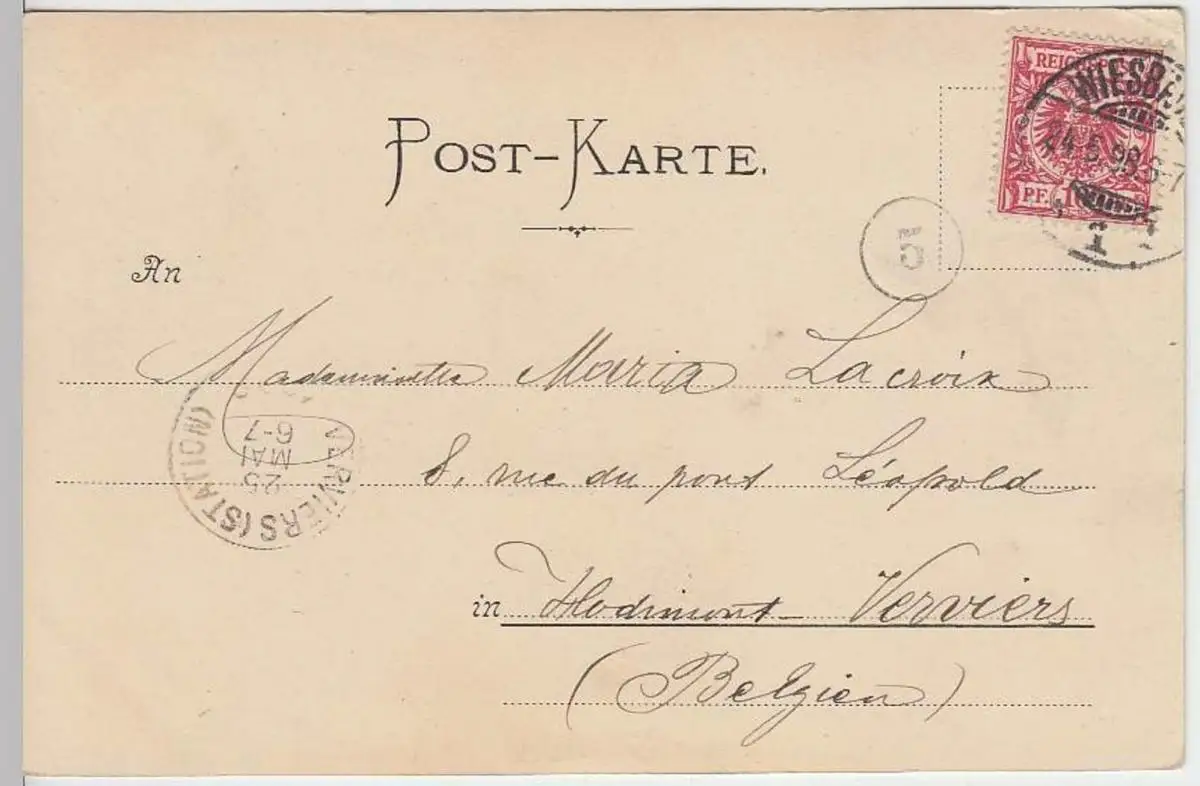 POST-KARTE.
REICHSPOST
PF. 10
WIESBA
24.5.98.6-7
1
5
An
Mademoiselle Maria Lacroix
VERVIERS (STATION)
25
MAI
6-7
8, rue du pont Léopold
in Hodimont-Verviers
(Belgien)